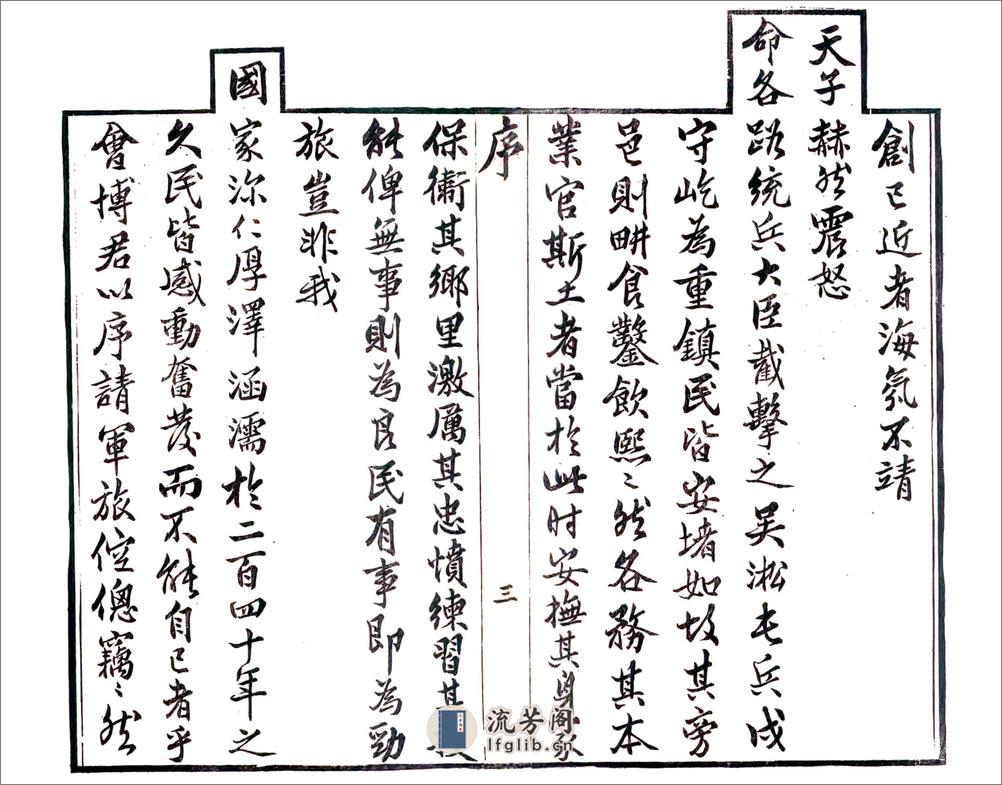 創已近者海氛不靖
天子赫然震怒
命各路統兵大臣截擊之吴淞屯兵戍
守屹為重鎮民皆安堵如故其旁
邑則畊食鑿飲熙〻然各務其本
業官斯土者當於此时安撫其身家
序
三
保衛其鄉里激厲其忠憤練習其技
能俾無事則為良民有事即為勁
旅豈非我
國家深仁厚澤涵濡於二百四十年之
久民皆感動奮發而不能自已者乎
會博君以序請軍旅倥傯竊〻然
流芳阁
lfglib.cn